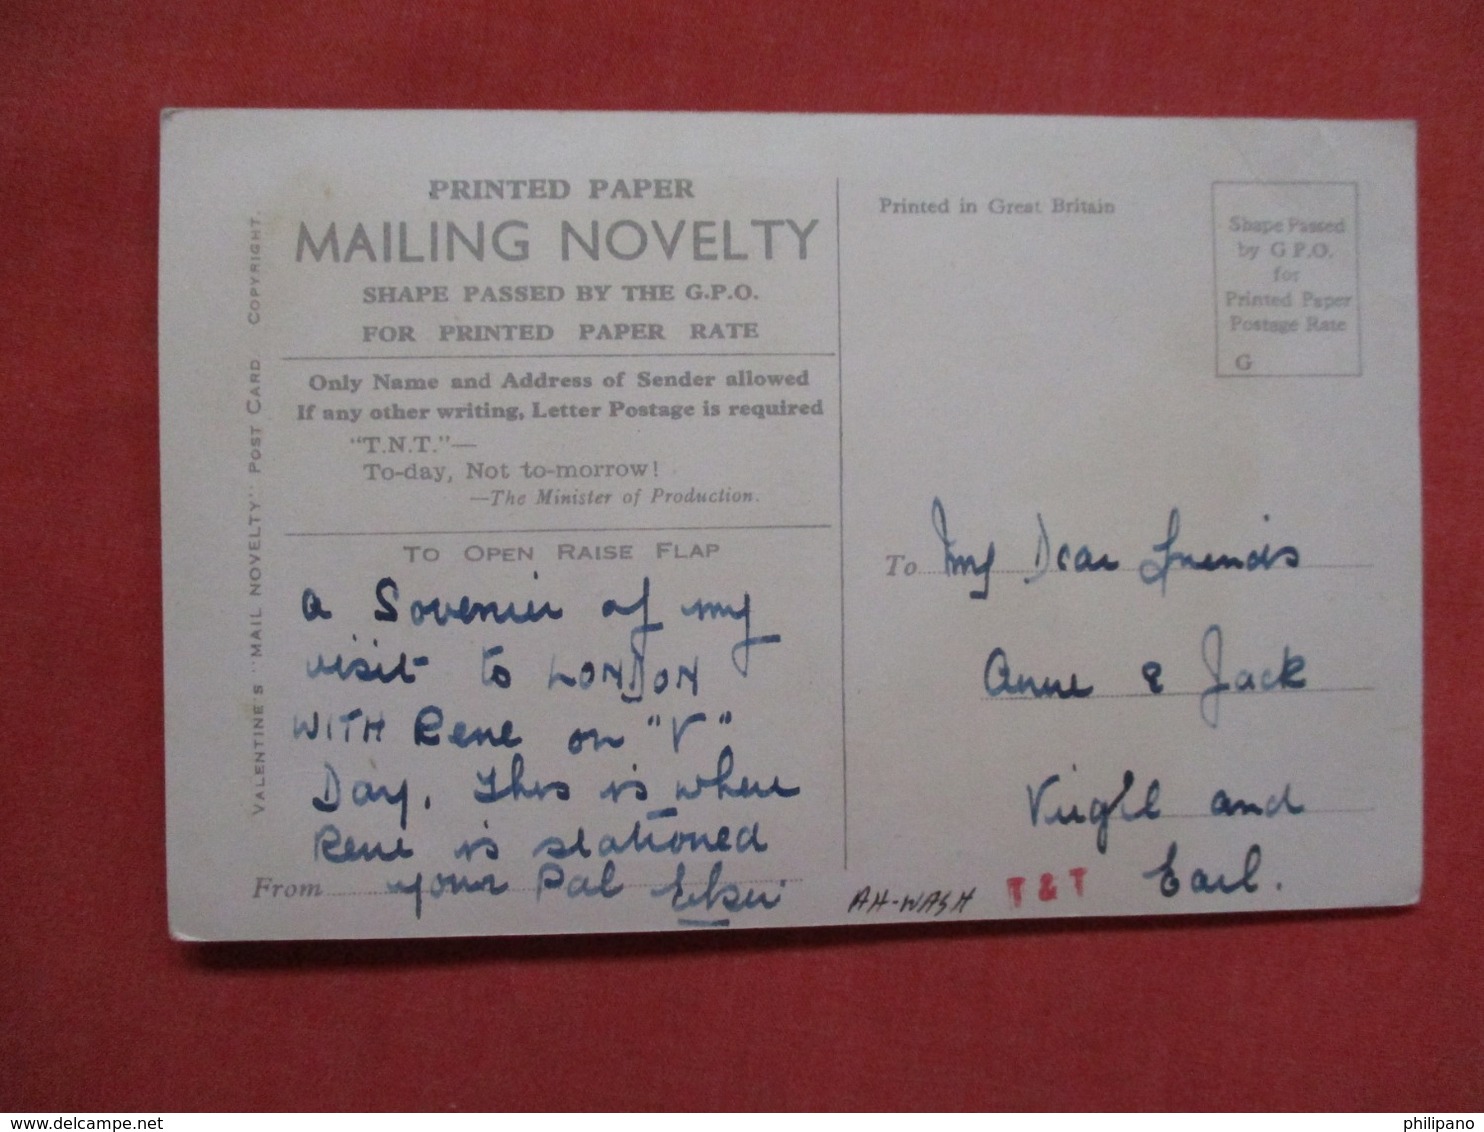 VALENTINE'S "MAIL NOVELTY" POST CARD COPYRIGHT.
PRINTED PAPER
MAILING NOVELTY
SHAPE PASSED BY THE G.P.O.
FOR PRINTED PAPER RATE
Only Name and Address of Sender allowed
If any other writing, Letter Postage is required
"T.N.T."—
To-day, Not to-morrow!
—The Minister of Production.
TO OPEN RAISE FLAP
a Sovenir of my
visit to LONDON
WITH Rene on "V"
Day. This is where
Rene is stationed
From your Pal
Printed in Great Britain
Shape Passed
by G.P.O.
for
Printed Paper
Postage Rate
G
To My Dear Friends
Anne & Jack
Virgil and
Earl.
AH-WASH T & T
delcampe.net
philipano